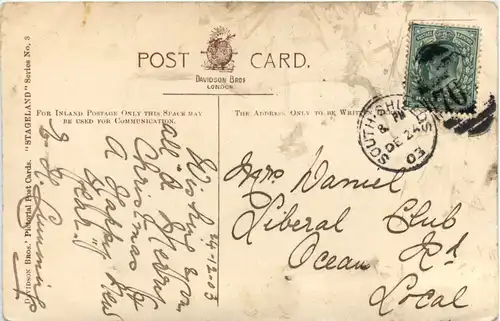 POST CARD.
DAVIDSON BROS
LONDON
FOR INLAND POSTAGE ONLY THIS SPACE MAY
BE USED FOR COMMUNICATION.
THE ADDRESS ONLY TO BE WRITTEN
DAVIDSON BROS.' PICTORIAL POST CARDS. "STAGELAND" SERIES No. 3
24-12-03
Wishing you
all A Merry
Christmas &
A Happy New
Year
SOUTH SHIELDS
DE 24
03
Mrs Daniel
Liberal Club
Ocean Rd
Local